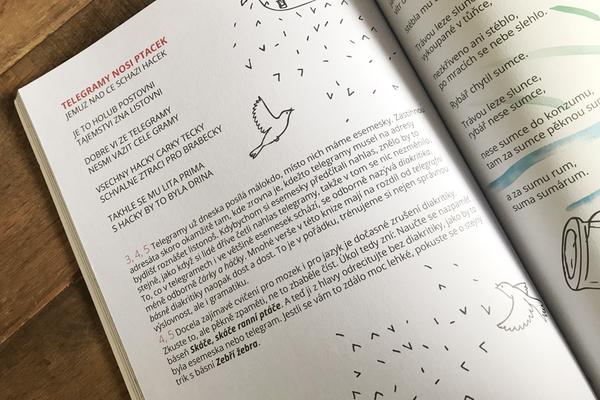 TELEGRAMY NOSI PTACEK
JEMUZ NAD CE SCHAZI HACEK
JE TO HOLUB POSTOVNI
TAJEMSTVI ZNA LISTOVNI
DOBRE VI ZE TELEGRAMY
NESMI VAZIT CELE GRAMY
VSECHNY HACKY CARKY TECKY
SCHVALNE ZTRACI PRO BRABECKY
TAKHLE SE MU LITA PRIMA
S HACKY BY TO BYLA DRINA
3, 4, 5 Telegramy už dneska posílá málokdo, místo nich máme esemesky. Zastihnou
adresáta skoro okamžitě tam, kde zrovna je, kdežto telegramy musel na adresy
bydlišť roznášet listonoš. Kdybychom si esemesky předčítali nahlas, znělo by to
stejně, jako když si lidé dříve četli nahlas telegramy, takže v tom se nic nezměnilo.
To, co v telegramech i ve většině esemesek schází, se odborně nazývá diakritika,
méně odborně čárky a háčky. Mnohé verše v této knize mají na rozdíl od telegrafní
básně diakritiky naopak dost a dost. To je v pořádku, trénujeme si nejen správnou
výslovnost, ale i gramatiku.
4, 5 Docela zajímavé cvičení pro mozek i pro jazyk je dočasné zrušení diakritiky.
Zkuste to, ale pěkně zpaměti, ne to zbaběle číst. Úkol tedy zní: Naučte se nazpaměť
báseň Skáče, skáče ranní ptáče. A teď ji z hlavy odrecitujte bez diakritiky, jako by to
byla esemeska nebo telegram. Jestli se vám to zdálo moc lehké, pokuste se o stejný
trik s básní Zebří žebra.
stébla mu
Trávou leze slunce,
vykoupané v tůňce,
nezkřiveno ani stéblo,
po mracích se nebe slehlo.
Rybář chytil sumce.
Trávou leze slunce,
rybář nese sumce,
nese sumce do konzumu,
tam za sumce pěknou sumu
a za sumu rum,
suma sumárum.